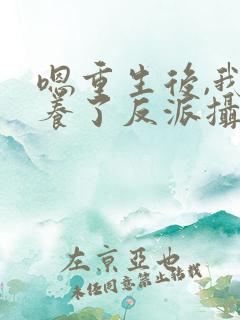 嗯重生後,我
養了反派攝
左京亞也
未经同意禁止转载